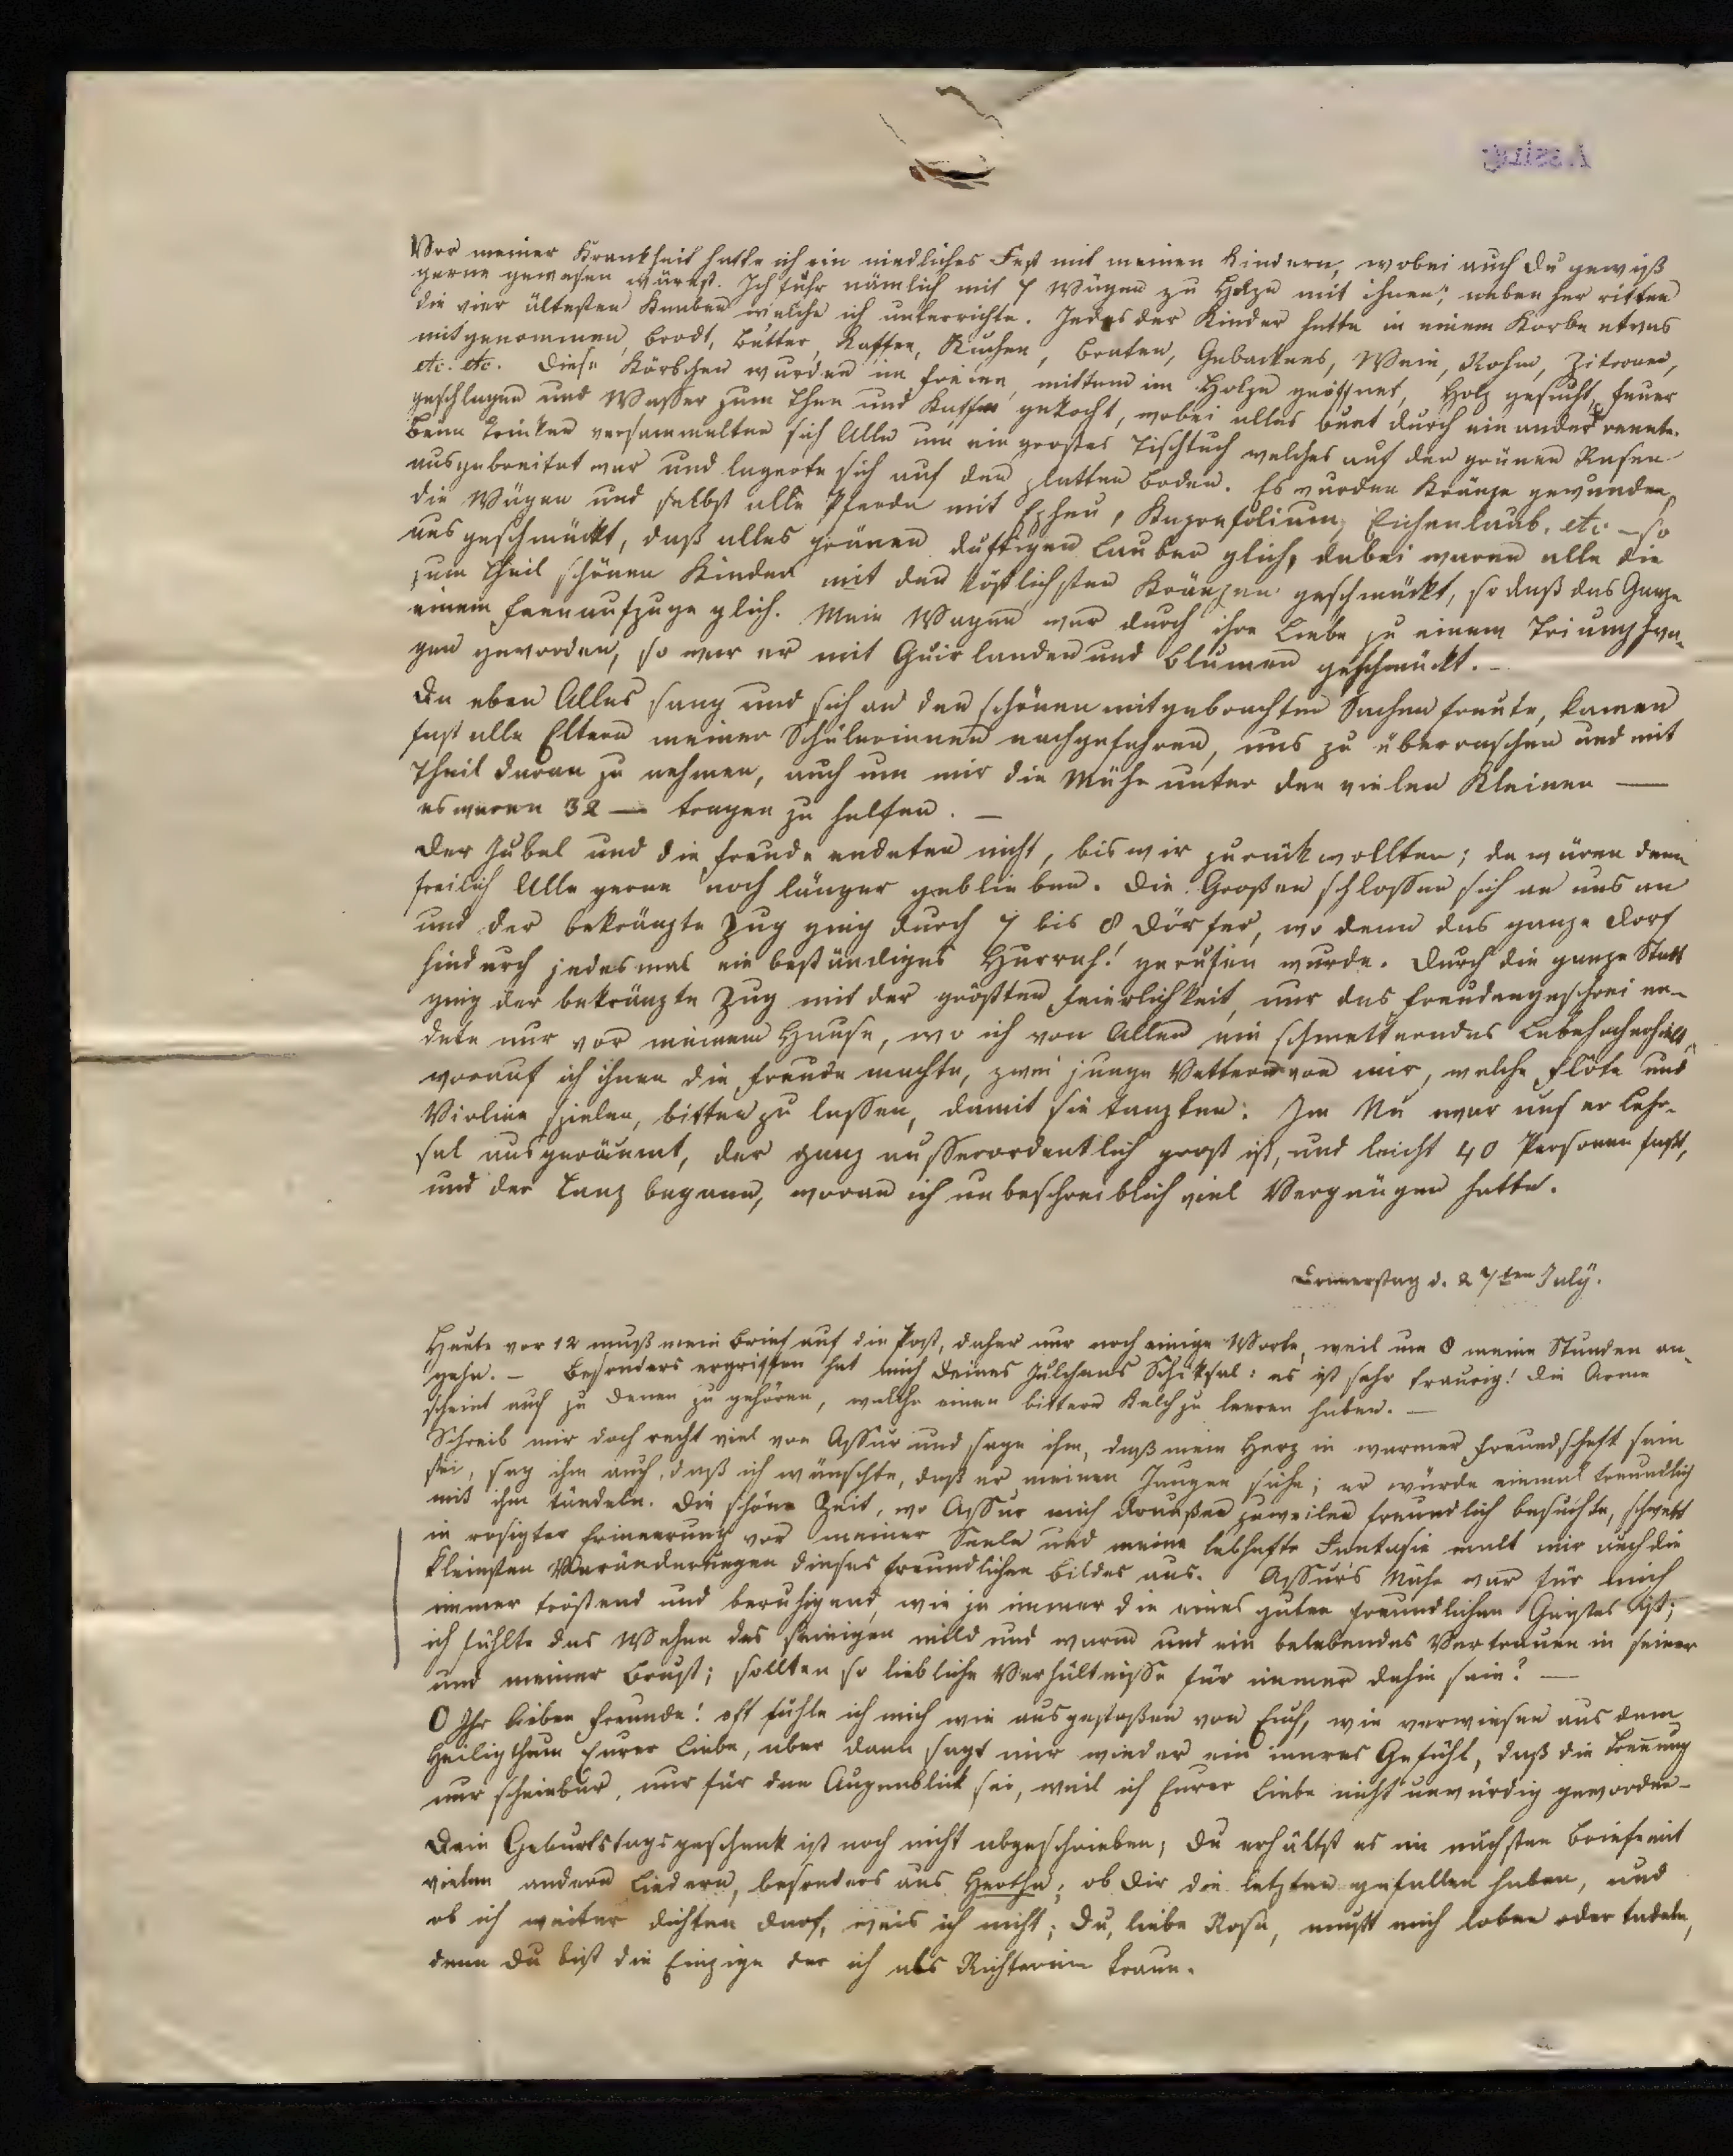 Assing
Vor meiner Krankheit hatte ich ein niedliches Fest mit meinen Kindern, wobei auch Du gewiß
gerne gewesen wärest. Ich fuhr nämlich mit 7 Wägen zu Holze mit ihnen; neben her ritten
die vier ältesten Knaben welche ich unterrichte. Jedes der Kinder hatte in einem Korbe etwas
mitgenommen, Brodt, Butter, Kaffee, Kuchen, Braten, Gebackenes, Wein, Rohm, Zitronen,
etc. etc. Diese Körbchen wurden im Freien, mitten im Holze geöffnet, Holz gesucht, Feuer
geschlagen und Wasser zum Thee und Kaffee gekocht, wobei alles bunt durch ein ander rannte.
Beim Trinken versammelten sich Alle um ein großes Tischtuch welches auf den grünen Rasen
ausgebreitet war und lagerte sich auf den platten Boden. Es wurden Kränze gewunden,
die Wägen und selbst alle Pferde mit Epheu, Kaprifolium, Eichenlaub, etc. – so
ausgeschmückt, daß alles grünen duftigen Lauben glich, dabei waren alle die
zum Theil schönen Kinder mit den köstlichsten Kränzen geschmückt, so daß das Ganze
einem Feenaufzuge glich. Mein Wagen war durch ihre Liebe zu einem Triumphwa-
gen geworden, so war er mit Guirlanden und Blumen geschmückt. –
Da eben Alles sang und sich an den schönen mitgebrachten Sachen freute, kamen
fast alle Eltern meiner Schülerinnen nachgefahren, uns zu überraschen und mit
Theil daran zu nehmen, auch um mir die Mühe unter den vielen Kleinen —
es waren 32 — tragen zu helfen. –
Der Jubel und die Freude endeten nicht, bis wir zurück wollten; da wären denn
freilich Alle gerne noch länger geblieben. Die Großen schlossen sich an uns an
und der bekränzte Zug ging durch 7 bis 8 Dörfer, wo denn das ganze Dorf
hindurch jedesmal ein beständiges Hurrah! gerufen wurde. Durch die ganze Statt
ging der bekränzte Zug mit der größten Feierlichkeit, nur das Freudengeschrei en-
dete nur vor meinem Hause, wo ich von Allen ein schmetterndes Lebehoch erhielt,
worauf ich ihnen die Freude machte, zwei junge Vettern von mir, welche Flöte und
Violine spielen, bitten zu lassen, damit sie tanzten. Im Nu war unser Lehr-
sal ausgeräumt, der ganz ausserordentlich groß ist, und leicht 40 Personen faßt,
und der Tanz begann, woran ich unbeschreiblich viel Vergnügen hatte.
Donnerstag d. 27ten July.
Heute vor 12 muß mein Brief auf die Post, daher nur noch einige Worte, weil um 8 meine Stunden an-
gehn. – Besonders ergriffen hat mich Deines Julchens Schiksal: es ist sehr traurig! die Arme
scheint auch zu denen zu gehören, welche einen bittern Kelch zu leeren haben. –
Schreib mir doch recht viel von Assur und sage ihm, daß mein Herz in warmer Freundschaft sein
sei, sag ihm auch, daß ich wünschte, daß er meinen Jungen sähe; er würde einmal freundlich
mit ihm tändeln. Die schöne Zeit, wo Assur mich draußen zuweilen freundlich besuchte, schwebt
in rosigter Erinnerung vor meiner Seele und meine lebhafte Fantasie malt mir auch die
kleinsten Veränderungen dieses freundlichen Bildes aus. Assur's Nähe war für mich
immer tröstend und beruhigend, wie ja immer die eines guten freundlichen Geistes ist;
ich fühlte das Wehen des seinigen mild und warm und ein belebendes Vertrauen in seiner
und meiner Brust; sollten so liebliche Verhältnisse für immer dahin sein? —
O Ihr lieben Freunde! oft fühle ich mich wie ausgestoßen von Euch, wie verwiesen aus dem
Heiligthum Eurer Liebe, aber dann sagt mir wieder ein inneres Gefühl, daß die Trennung
nur scheinbar, nur für den Augenblick sei, weil ich Eurer Liebe nicht unwürdig geworden –
Dein Geburtstagsgeschenk ist noch nicht abgeschrieben; Du erhältst es im nächsten Briefe mit
vielen andern Liedern, besonders aus Hertha; ob Dir die letzten gefallen haben, und
ob ich weiter dichten darf, weis ich nicht; Du, liebe Rosa, mußt mich loben oder tadeln,
denn Du bist die Einzige der ich als Richterinn traue.